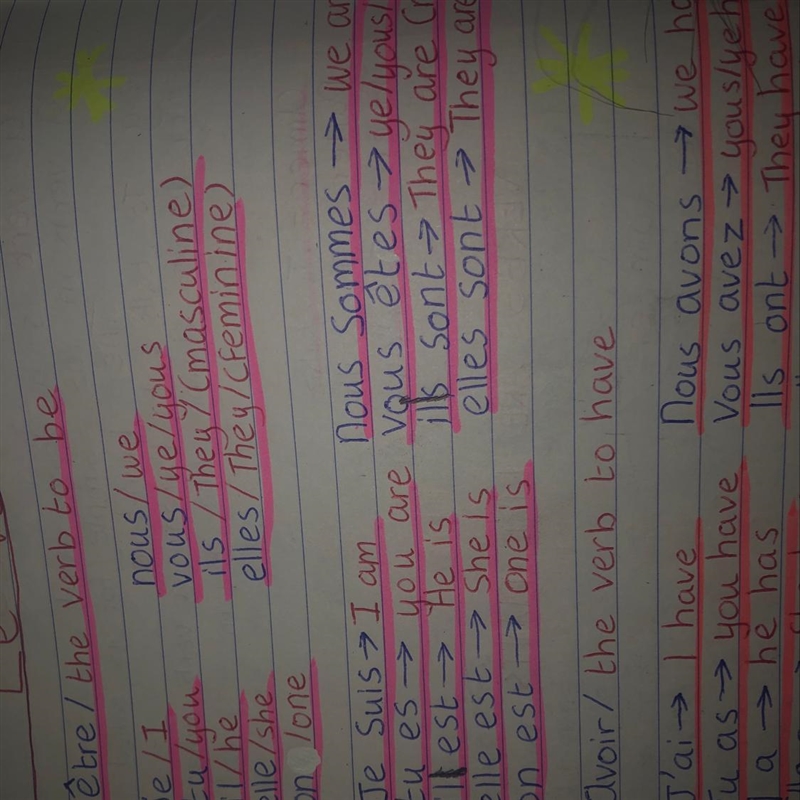 être/ the verb to be
je/I nous/we
tu/you vous/ye/yous
il/he ils/They/(masculine)
elle/she elles/They/(feminine)
on/one
Je Suis → I am Nous Sommes → we ar
tu es → you are vous êtes → ye/yous/
il est → He is ils sont → They are (
elle est → She is elles sont → They are
on est → one is
avoir/ the verb to have
J'ai → I have Nous avons → we ha
Tu as → you have Vous avez → yous/ye h
Il a → he has Ils ont → They have